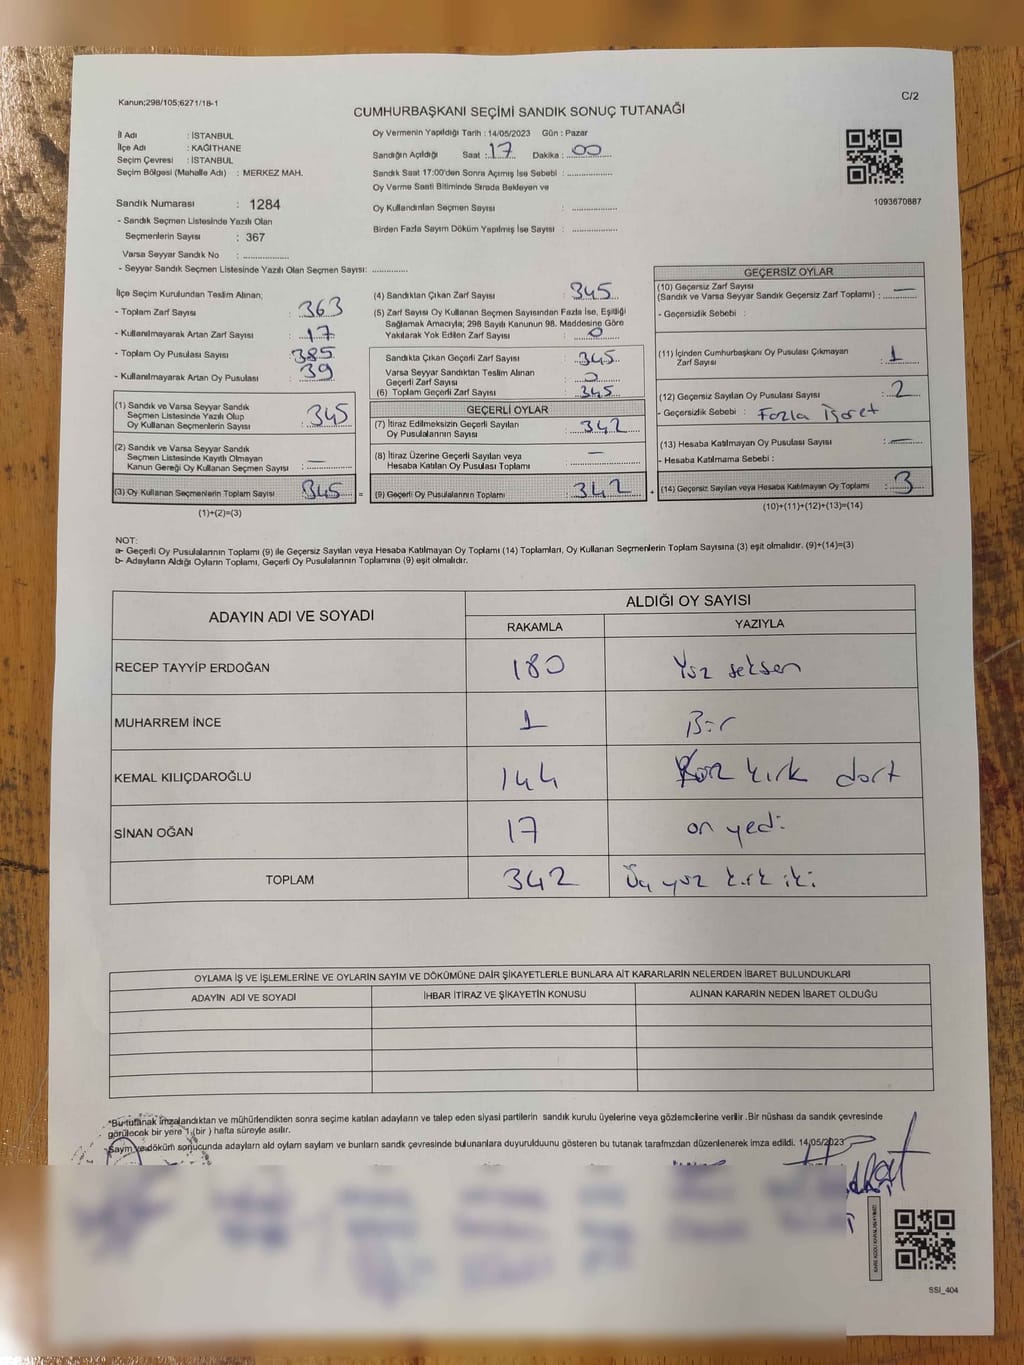 Kanun;298/105;6271/18-1
C/2
CUMHURBAŞKANI SEÇİMİ SANDIK SONUÇ TUTANAĞI
İl Adı : İSTANBUL
İlçe Adı : KAĞITHANE
Seçim Çevresi : İSTANBUL
Seçim Bölgesi (Mahalle Adı) : MERKEZ MAH.
Oy Vermenin Yapıldığı Tarih : 14/05/2023 Gün : Pazar
Sandığın Açıldığı Saat : 17 Dakika : 00
Sandık Saat 17:00'den Sonra Açımış İse Sebebi : ..................
Oy Verme Saati Bitiminde Sırada Bekleyen ve
Oy Kullandırılan Seçmen Sayısı : ..................
Birden Fazla Sayım Döküm Yapılmış İse Sayısı : ..................
1093670887
Sandık Numarası : 1284
- Sandık Seçmen Listesinde Yazılı Olan
Seçmenlerin Sayısı : 367
Varsa Seyyar Sandık No : ..................
- Seyyar Sandık Seçmen Listesinde Yazılı Olan Seçmen Sayısı: ..............
İlçe Seçim Kurulundan Teslim Alınan;
- Toplam Zarf Sayısı : 363
- Kullanılmayarak Artan Zarf Sayısı : 17
- Toplam Oy Pusulası Sayısı : 385
- Kullanılmayarak Artan Oy Pusulası : 39
(1) Sandık ve Varsa Seyyar Sandık
Seçmen Listesinde Yazılı Olup
Oy Kullanan Seçmenlerin Sayısı : 345
(2) Sandık ve Varsa Seyyar Sandık
Seçmen Listesinde Kayıtlı Olmayan
Kanun Gereği Oy Kullanan Seçmen Sayısı : —
(3) Oy Kullanan Seçmenlerin Toplam Sayısı : 345 =
(1)+(2)=(3)
(4) Sandıktan Çıkan Zarf Sayısı : 345
(5) Zarf Sayısı Oy Kullanan Seçmen Sayısından Fazla İse, Eşitliği
Sağlamak Amacıyla; 298 Sayılı Kanunun 98. Maddesine Göre
Yakılarak Yok Edilen Zarf Sayısı : 0
Sandıkta Çıkan Geçerli Zarf Sayısı : 345
Varsa Seyyar Sandıktan Teslim Alınan
Geçerli Zarf Sayısı : 0
(6) Toplam Geçerli Zarf Sayısı : 345
GEÇERLİ OYLAR
(7) İtiraz Edilmeksizin Geçerli Sayılan
Oy Pusulalarının Sayısı : 342
(8) İtiraz Üzerine Geçerli Sayılan veya
Hesaba Katılan Oy Pusulası Toplamı : —
(9) Geçerli Oy Pusulalarının Toplamı : 342 +
GEÇERSİZ OYLAR
(10) Geçersiz Zarf Sayısı
(Sandık ve Varsa Seyyar Sandık Geçersiz Zarf Toplamı) : —
- Geçersizlik Sebebi :
(11) İçinden Cumhurbaşkanı Oy Pusulası Çıkmayan
Zarf Sayısı : 1
(12) Geçersiz Sayılan Oy Pusulası Sayısı : 2
- Geçersizlik Sebebi : Fazla İşaret
(13) Hesaba Katılmayan Oy Pusulası Sayısı : —
- Hesaba Katılmama Sebebi :
(14) Geçersiz Sayılan veya Hesaba Katılmayan Oy Toplamı : 3
(10)+(11)+(12)+(13)=(14)
NOT:
a- Geçerli Oy Pusulalarının Toplamı (9) ile Geçersiz Sayılan veya Hesaba Katılmayan Oy Toplamı (14) Toplamları, Oy Kullanan Seçmenlerin Toplam Sayısına (3) eşit olmalıdır. (9)+(14)=(3)
b- Adayların Aldığı Oyların Toplamı, Geçerli Oy Pusulalarının Toplamına (9) eşit olmalıdır.
ADAYIN ADI VE SOYADI
ALDIĞI OY SAYISI
RAKAMLA YAZIYLA
RECEP TAYYİP ERDOĞAN 180 Yüz seksen
MUHARREM İNCE 1 Bir
KEMAL KILIÇDAROĞLU 144 Yüz kırk dört
SİNAN OĞAN 17 on yedi
TOPLAM 342 Üç yüz kırk iki
OYLAMA İŞ VE İŞLEMLERİNE VE OYLARIN SAYIM VE DÖKÜMÜNE DAİR ŞİKAYETLERLE BUNLARA AİT KARARLARIN NELERDEN İBARET BULUNDUKLARI
ADAYIN ADI VE SOYADI İHBAR İTİRAZ VE ŞİKAYETİN KONUSU ALINAN KARARIN NEDEN İBARET OLDUĞU
*Bu tutanak imzalandıktan ve mühürlendikten sonra seçime katılan adayların ve talep eden siyasi partilerin sandık kurulu üyelerine veya gözlemcilerine verilir .Bir nüshası da sandık çevresinde
görülecek bir yere 1 (bir ) hafta süreyle asılır.
Sayım ve döküm sonucunda adayların ald oyların sayların ve bunların sandık çevresinde bulunanlara duyurulduunu gösteren bu tutanak tarafmzdan düzenlenerek imza edildi. 14/05/2023
SSI_404